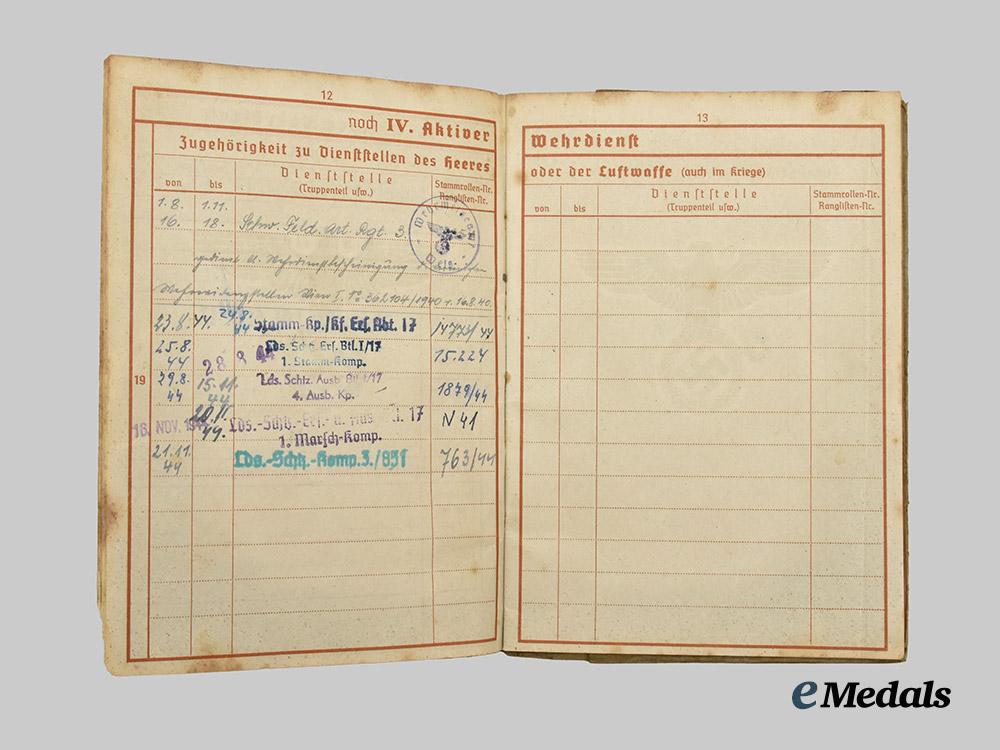 12
noch IV. Aktiver
Zugehörigkeit zu Dienststellen des Heeres
von
bis
Dienststelle
(Truppenteil usw.)
Stammrollen-Nr.
Ranglisten-Nr.
1.8. 1.11.
16. 18. Schw. Feld. Art. Rgt. 3.
gedient lt. Wehrdienstbescheinigung
Wien I. 362104/1940 v. 16.8.40.
23.8.44. 24.8.44 Stamm-Kp./Kf. Ers. Abt. 17 14773/44
25.8.44 28 8 44 Lds. Schtz. Ers. Btl. I/17
1. Stamm-Komp. 15.224
19
29.8.44 15.11.44 Lds. Schtz. Ausb. Btl. I/17
4. Ausb. Kp. 1879/44
16. NOV. 1944 20.11.44. Lds.-Schtz.-Ers.- u. Aus 17 N 41
1. Marsch-Komp.
21.11.44 Lds.-Schtz.-Komp. 3./851 763/44
13
Wehrdienst
oder der Luftwaffe (auch im Kriege)
von
bis
Dienststelle
(Truppenteil usw.)
Stammrollen-Nr.
Ranglisten-Nr.
eMedals